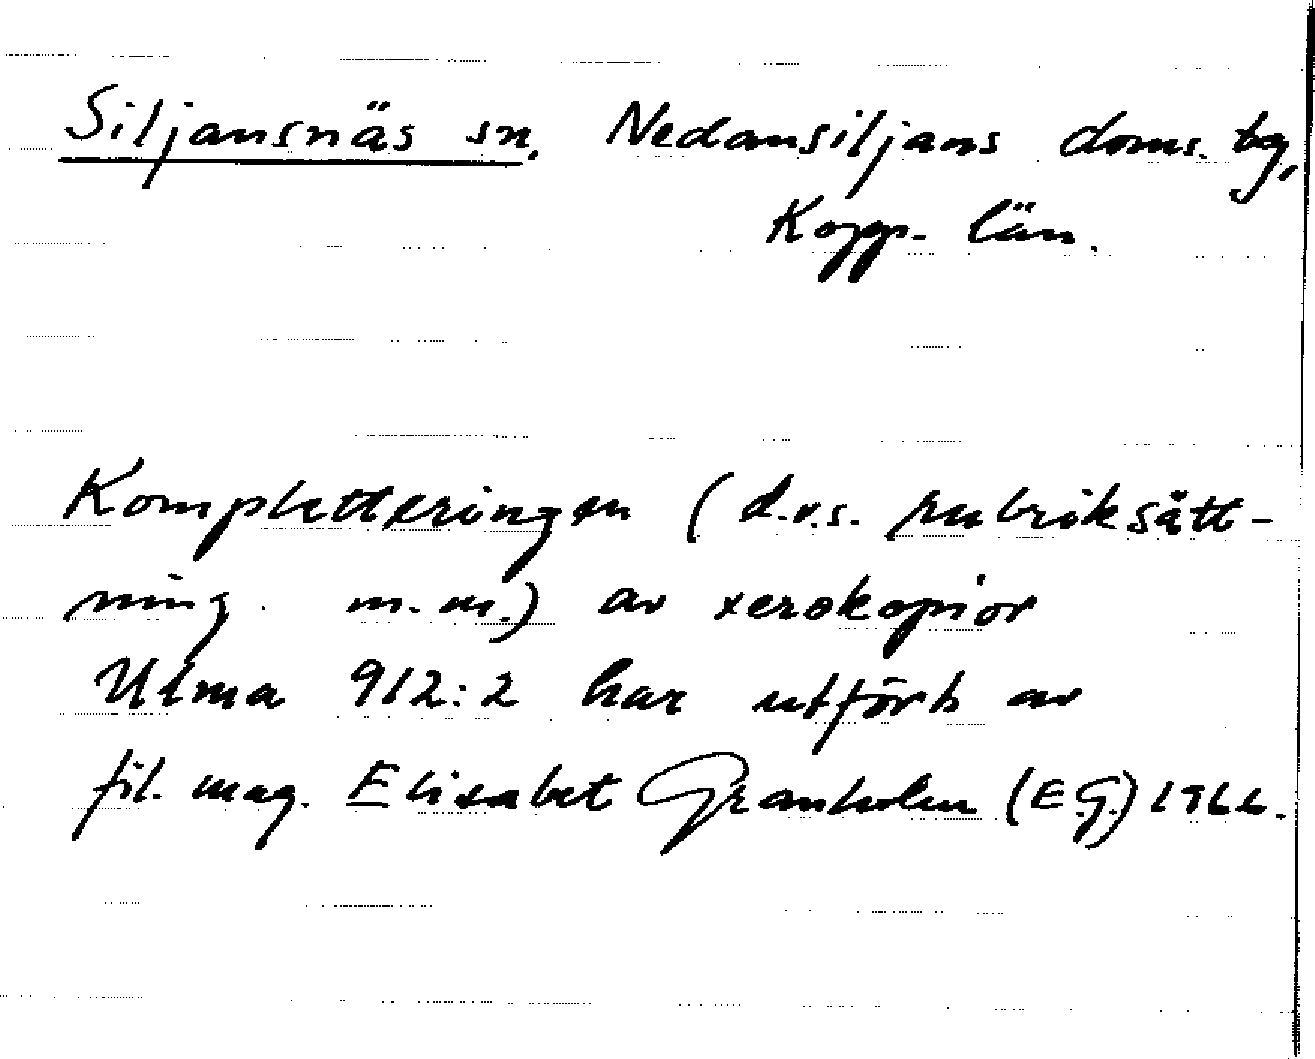 Siljansnäs sn. Nedansiljans doms. tg,
Kopp. län.
Kompletteringen (d.v.s. rubriksätt-
ning. m.m.) av xerokopior
Ulma 912:2 har utförts av
fil. mag. Elisabet Granholm (E.G.) 1966.